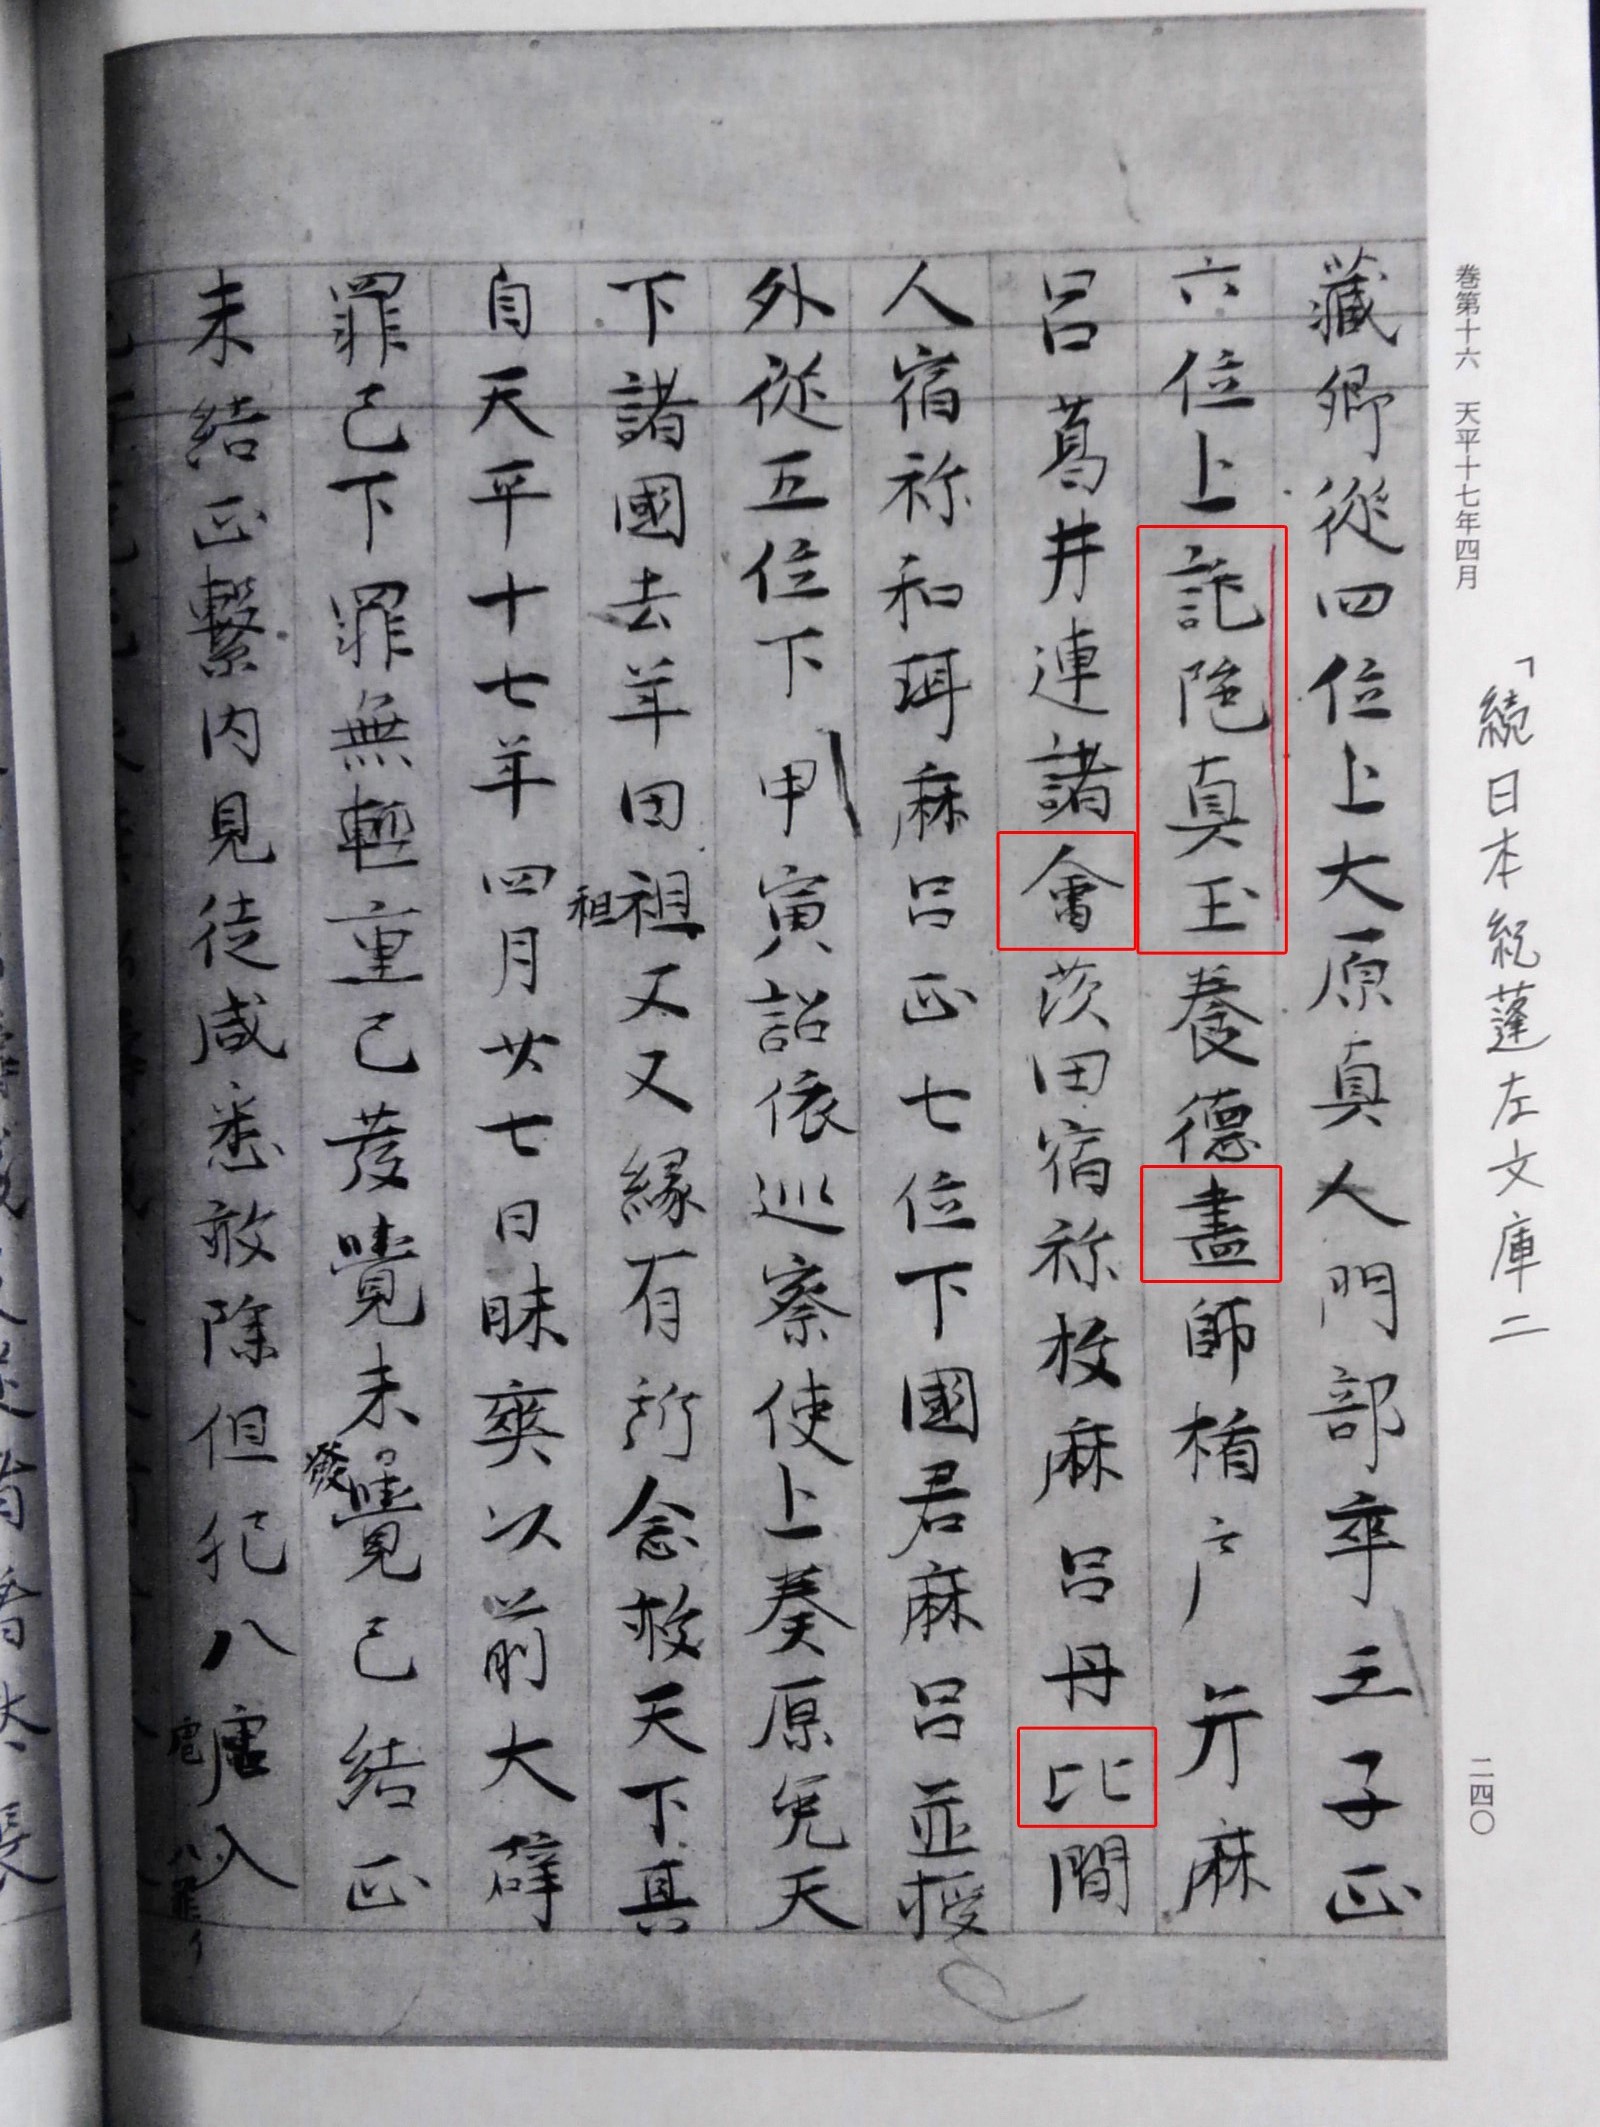 巻第十六　天平十七年四月
「続日本紀蓬左文庫二
二四〇
藏卿從四位上大原真人門部卒王子正
六位上詑陁真玉養德畫師楯戸弁麻
呂葛井連諸會茨田宿祢枚麻呂丹比間
人宿祢和珥麻呂正七位下國君麻呂並授
外從五位下甲寅詔依巡察使上奏原免天
下諸國去年田祖又又緣有所念救天下真
租
自天平十七年四月廿七日昧爽以前大辟
罪已下罪無輕重已發覺未覺已結正
發
未結正繫内見徒咸悉赦除但犯八虐入
虐